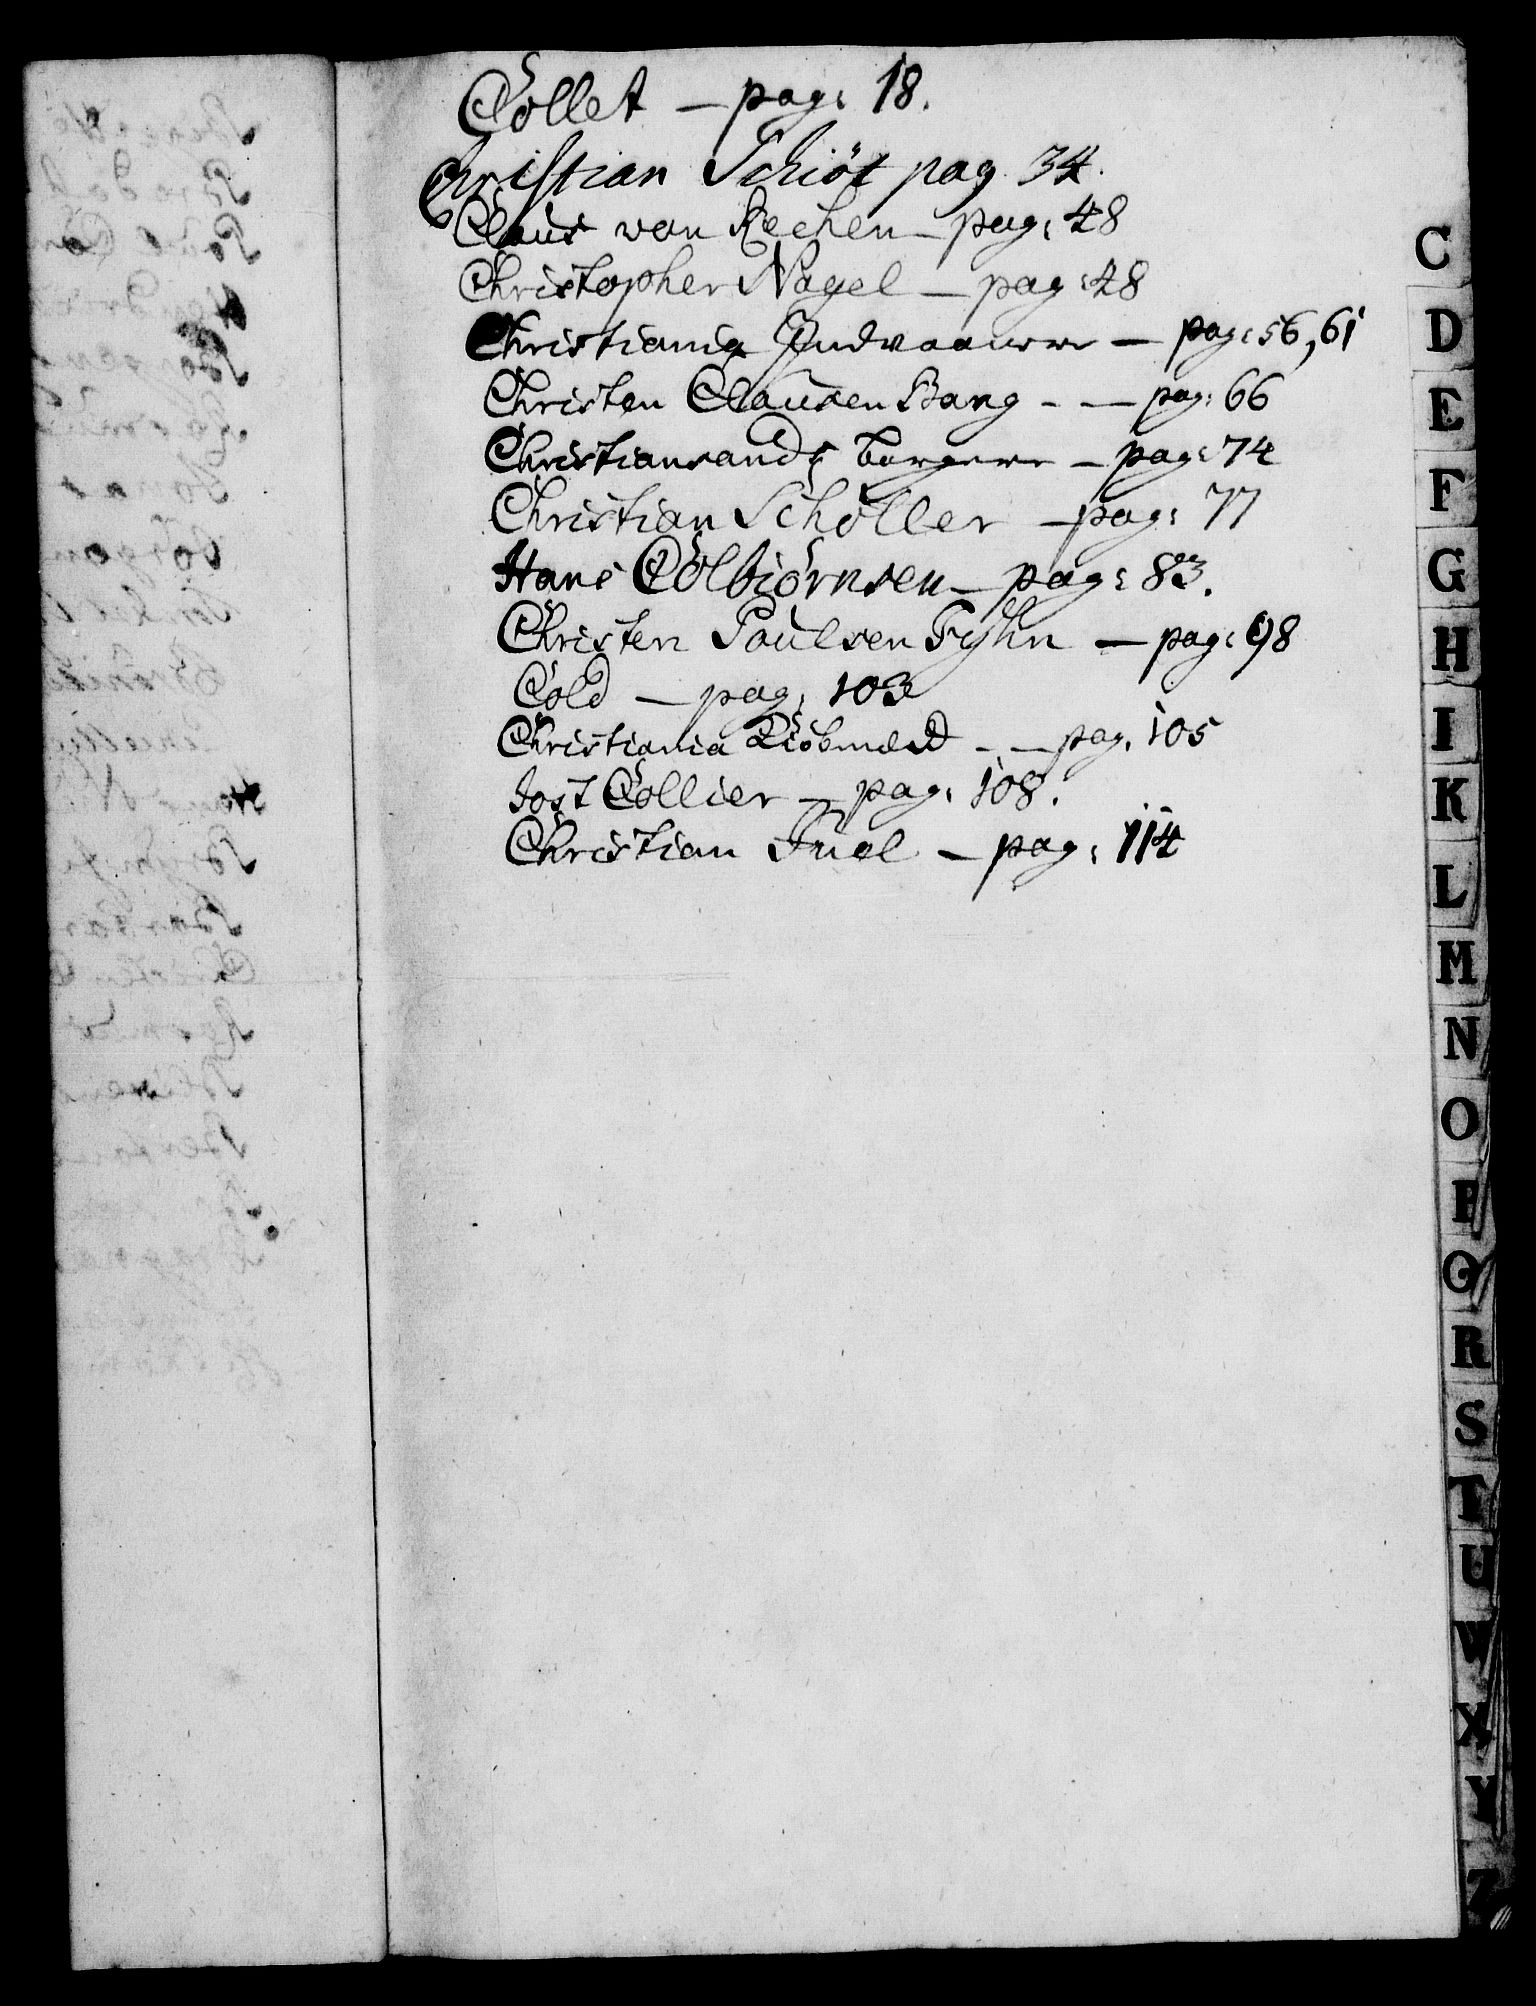 Collet — pag: 18.
Christian Schiöt pag. 34.
Claus von Rechen — pag: 48
Christopher Nagel — pag: 48
Christiania Indvaanere — pag: 56, 61
Christen Clausen Bang - — pag: 66
Christiansands borgere — pag: 74
Christian Schöller — pag: 77
Hans Colbiörnsen — pag: 83.
Christen Poulsen Fyhn — pag: 98
Cold — pag: 103
Christiania Kiöbmænd - — pag. 105
Jost Collier — pag: 108.
Christian Juel — pag: 114
C
D
E
F
G
H
I
K
L
M
N
O
P
Q
R
S
T
U
W
X
Y
Z